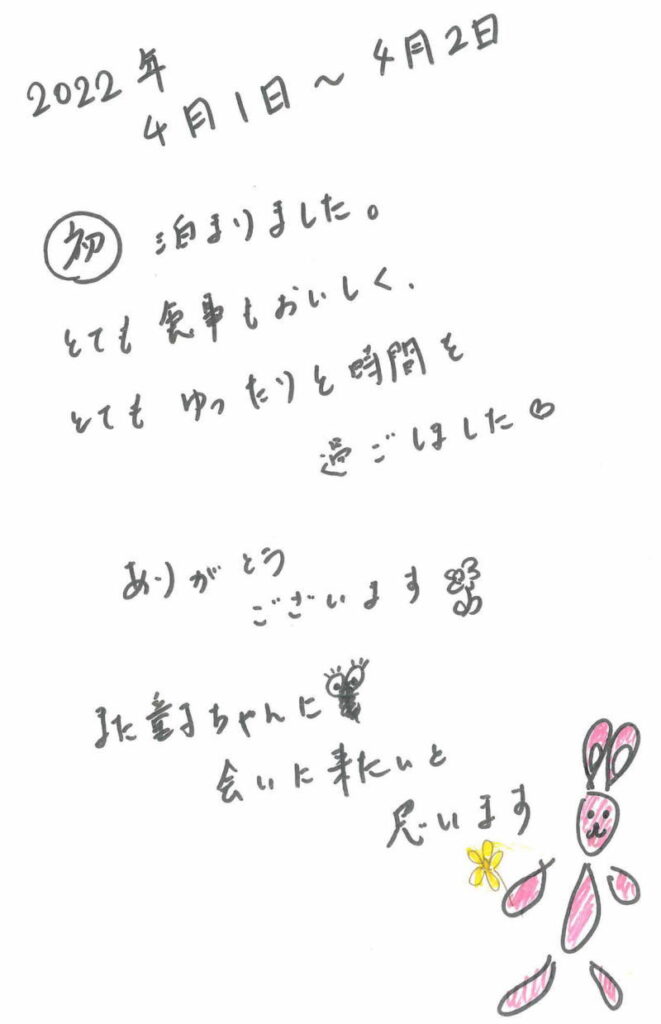 2022年
4月1日～4月2日
初 泊まりました。
とても食事もおいしく、
とても ゆったりと時間を
過ごしました♡
ありがとう
ございます
また童子ちゃんに
会いに来たいと
思います